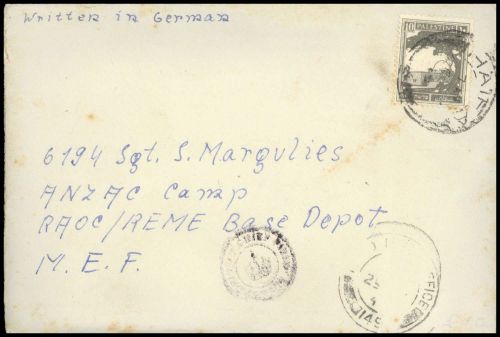 Written in German
10 PALESTINE
HAIFA
6194 Sgt. S. Margulies
ANZAC Camp
RAOC/REME Base Depot
M. E. F.